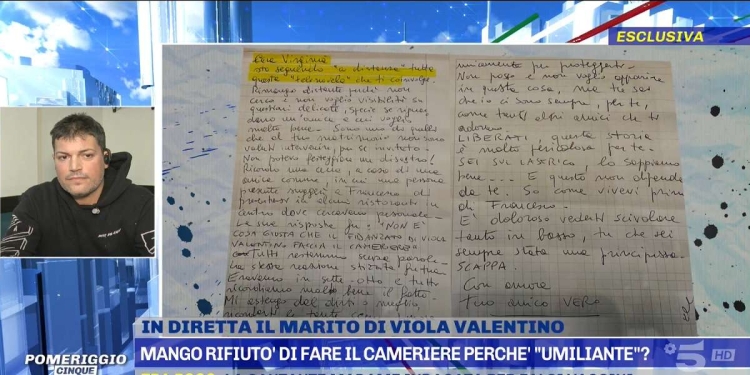 ESCLUSIVA
Cara Virginia
sto seguendo "a distanza" tutta
questa "telenovela" che ti coinvolge.
Rimango distante perché non
cerco e non voglio visibilità su
questioni delicate, specie se riguar
dano un'amica a cui voglio
molto bene. Sono uno di quelli
che al tuo matrimonio non sono
voluti intervenire, pur se invitato.
Non potevo festeggiare un disastro!
Ricordo una cena, a casa di una
amica comune, in cui una persona
presente suggerì a Francesco di
presentarsi in alcuni ristoranti in
centro dove cercavano personale.
La sua risposta fu: "NON È
COSA GIUSTA CHE IL FIDANZATO DI VIOLA
VALENTINO FACCIA IL CAMERIERE"
Tutti restammo senza parole.
La stessa reazione
Eravamo in sette-otto e tutti
ricordiamo molto bene il fatto
Mi astengo dal dirti o meglio
unicamente per proteggerti.
Non posso e non voglio apparire
in questa cosa, ma tu sai
che io ci sono sempre, per te,
come tanti altri amici che ti
adorano.
LIBERATI, questa storia
è molto pericolosa per te.
SEI SUL LASTRICO, lo sappiamo
bene.... E questo non dipende
da te. So come vivevi prima
di Francesco.
È doloroso vederti scivolare
tanto in basso, tu che sei
sempre stata una principessa.
SCAPPA.
Con amore
Tuo amico VERO
IN DIRETTA IL MARITO DI VIOLA VALENTINO
MANGO RIFIUTO' DI FARE IL CAMERIERE PERCHE' "UMILIANTE"?
POMERIGGIO
CINQUE
5 HD